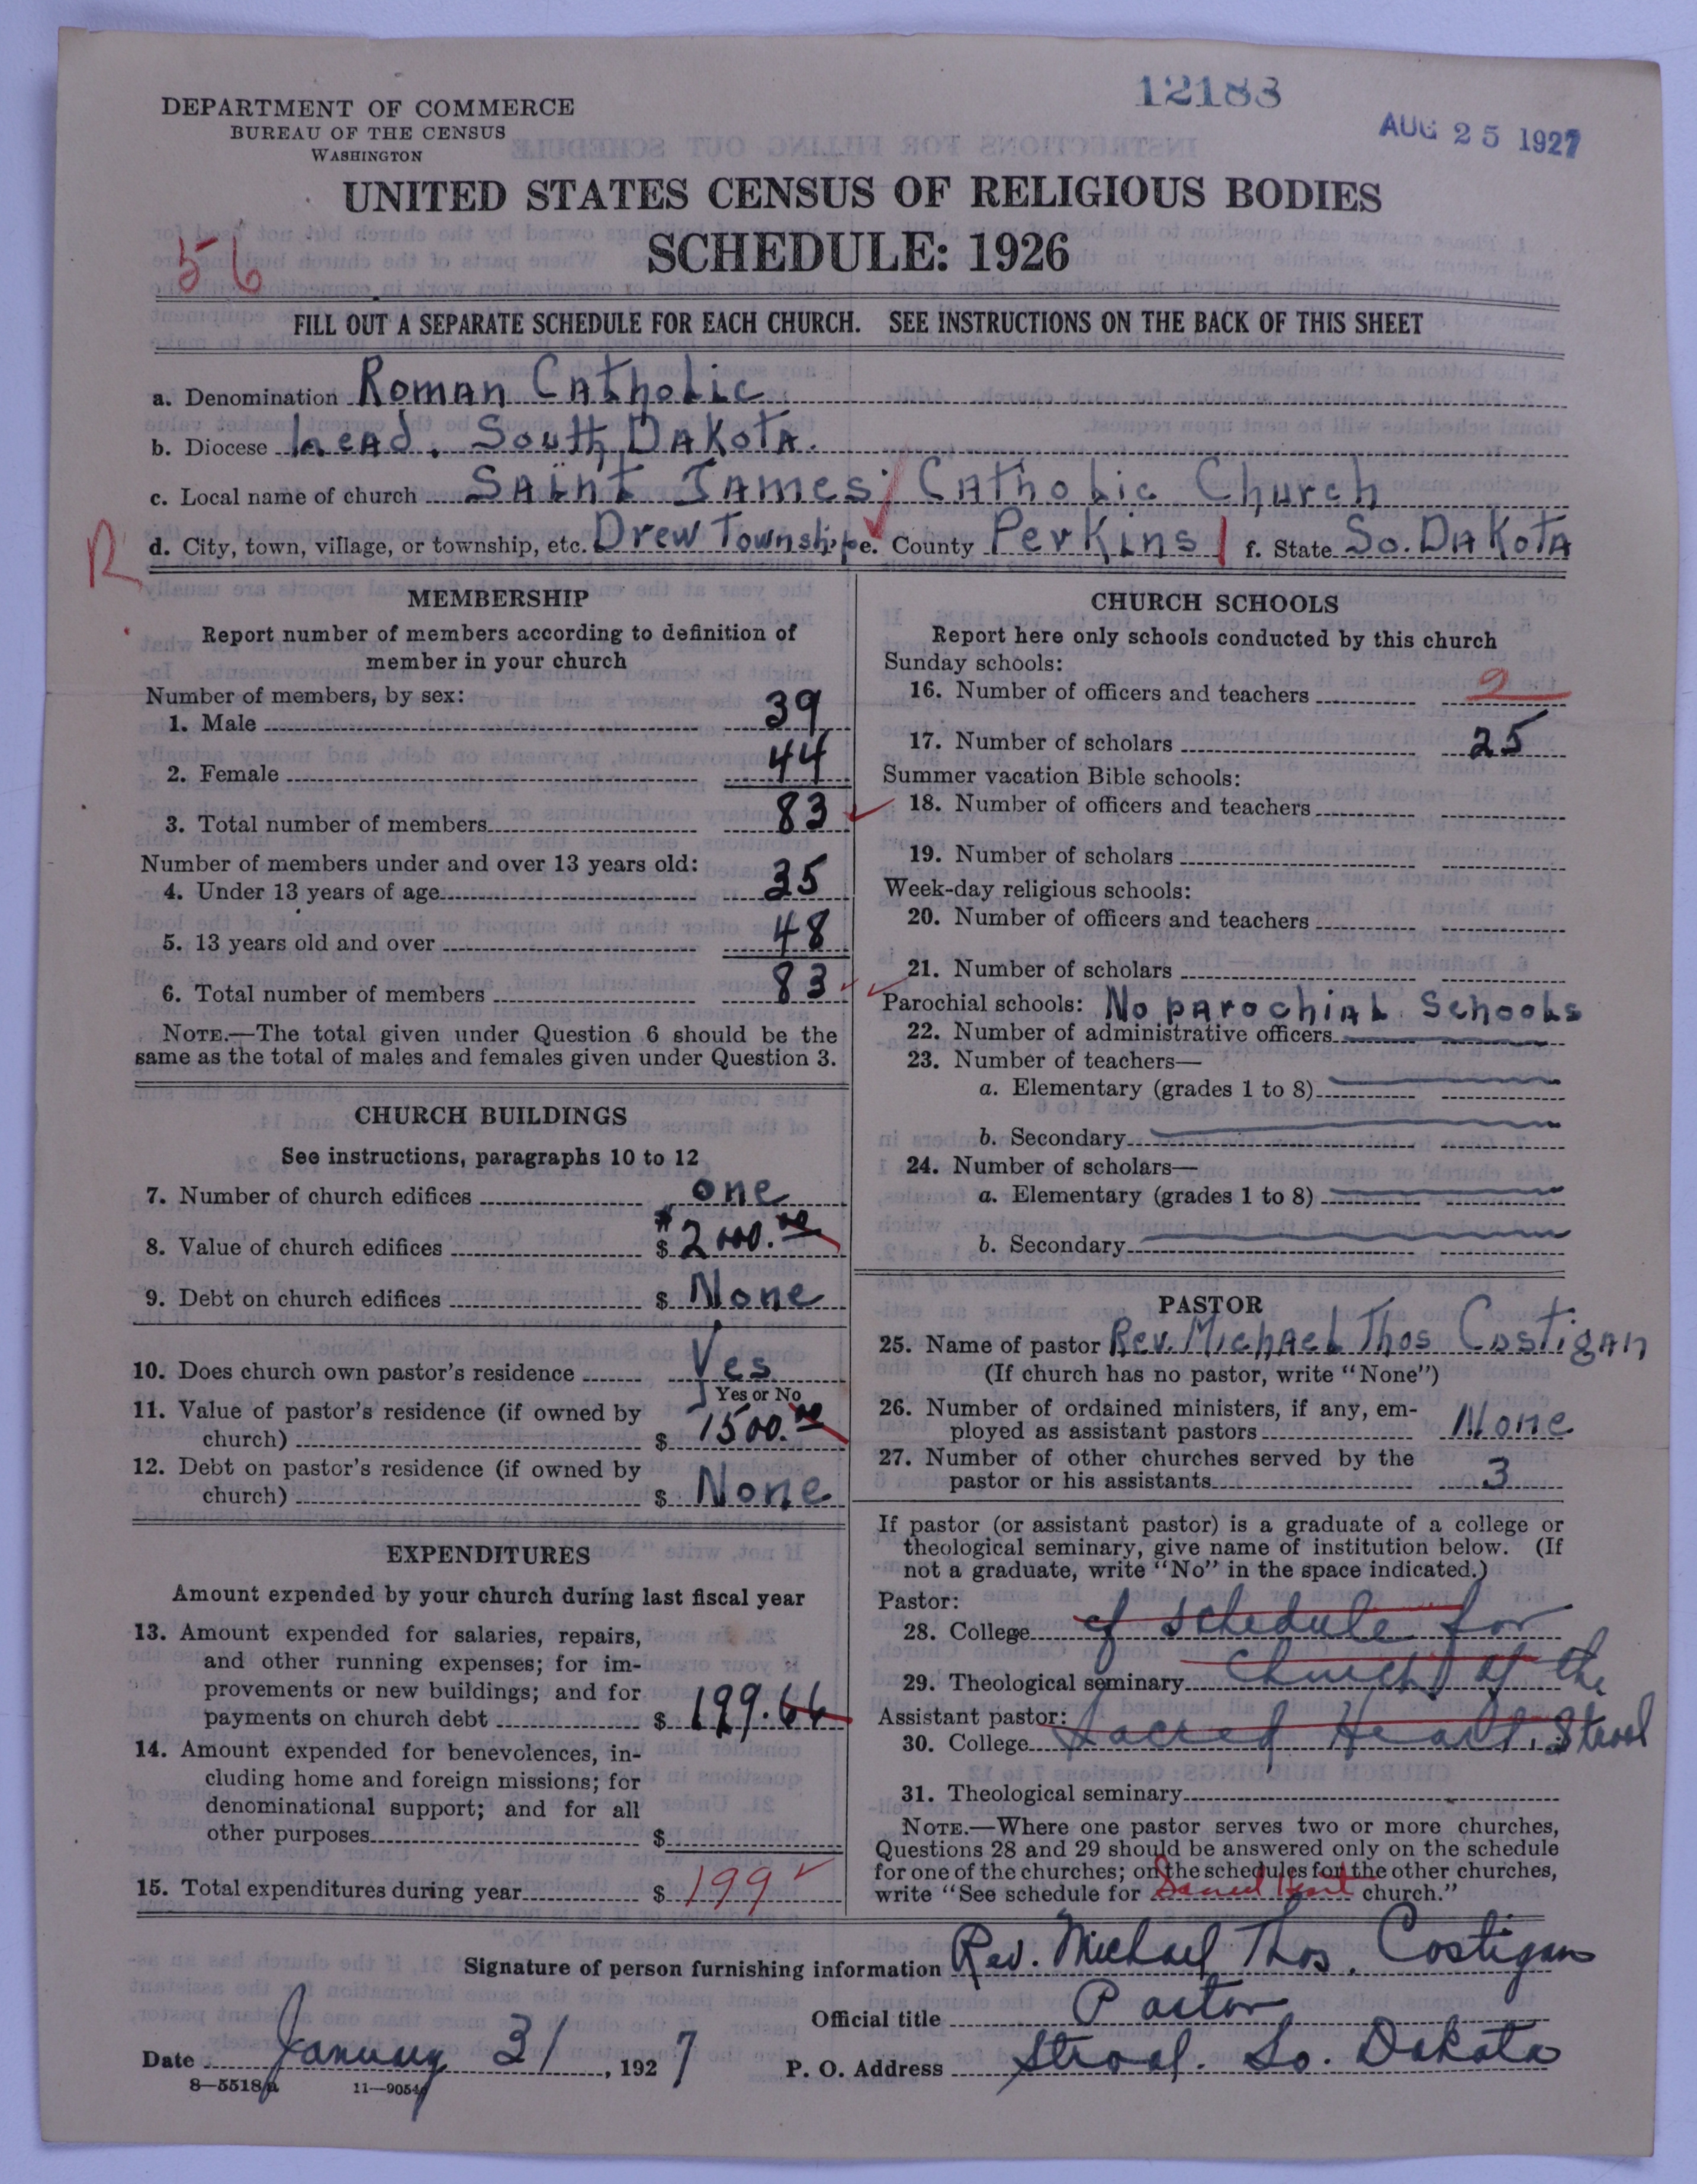 12183
AUG 25 1927
DEPARTMENT OF COMMERCE
BUREAU OF THE CENSUS
WASHINGTON
UNITED STATES CENSUS OF RELIGIOUS BODIES
SCHEDULE: 1926
56
FILL OUT A SEPARATE SCHEDULE FOR EACH CHURCH. SEE INSTRUCTIONS ON THE BACK OF THIS SHEET
a. Denomination Roman Catholic
b. Diocese Lead, South Dakota.
c. Local name of church Saint James Catholic Church
R
d. City, town, village, or township, etc. Drew Township e. County Perkins f. State So. Dakota
MEMBERSHIP
Report number of members according to definition of
member in your church
Number of members, by sex:
1. Male 39
2. Female 44
3. Total number of members 83
Number of members under and over 13 years old:
4. Under 13 years of age 35
5. 13 years old and over 48
6. Total number of members 83
NOTE.—The total given under Question 6 should be the
same as the total of males and females given under Question 3.
CHURCH BUILDINGS
See instructions, paragraphs 10 to 12
7. Number of church edifices one
8. Value of church edifices $ 2000.00
9. Debt on church edifices $ None
10. Does church own pastor's residence Yes
Yes or No
11. Value of pastor's residence (if owned by
church) $ 1500.00
12. Debt on pastor's residence (if owned by
church) $ None
EXPENDITURES
Amount expended by your church during last fiscal year
13. Amount expended for salaries, repairs,
and other running expenses; for im-
provements or new buildings; and for
payments on church debt $ 199.66
14. Amount expended for benevolences, in-
cluding home and foreign missions; for
denominational support; and for all
other purposes $
15. Total expenditures during year $ 199
CHURCH SCHOOLS
Report here only schools conducted by this church
Sunday schools:
16. Number of officers and teachers 2
17. Number of scholars 25
Summer vacation Bible schools:
18. Number of officers and teachers
19. Number of scholars
Week-day religious schools:
20. Number of officers and teachers
21. Number of scholars
Parochial schools: No parochial schools
22. Number of administrative officers
23. Number of teachers—
a. Elementary (grades 1 to 8)
b. Secondary
24. Number of scholars—
a. Elementary (grades 1 to 8)
b. Secondary
PASTOR
25. Name of pastor Rev. Michael Thos Costigan
(If church has no pastor, write "None")
26. Number of ordained ministers, if any, em-
ployed as assistant pastors None
27. Number of other churches served by the
pastor or his assistants 3
If pastor (or assistant pastor) is a graduate of a college or
theological seminary, give name of institution below. (If
not a graduate, write "No" in the space indicated.)
Pastor:
28. College of schedule for
29. Theological seminary church of the
Assistant pastor:
30. College Sacred Heart, Strool
31. Theological seminary
NOTE.—Where one pastor serves two or more churches,
Questions 28 and 29 should be answered only on the schedule
for one of the churches; on the schedules for the other churches,
write "See schedule for Sacred Heart church."
Signature of person furnishing information Rev. Michael Thos. Costigan
Official title Pastor
Date January 31, 1927 P. O. Address Strool. So. Dakota
8—5518a 11—9054